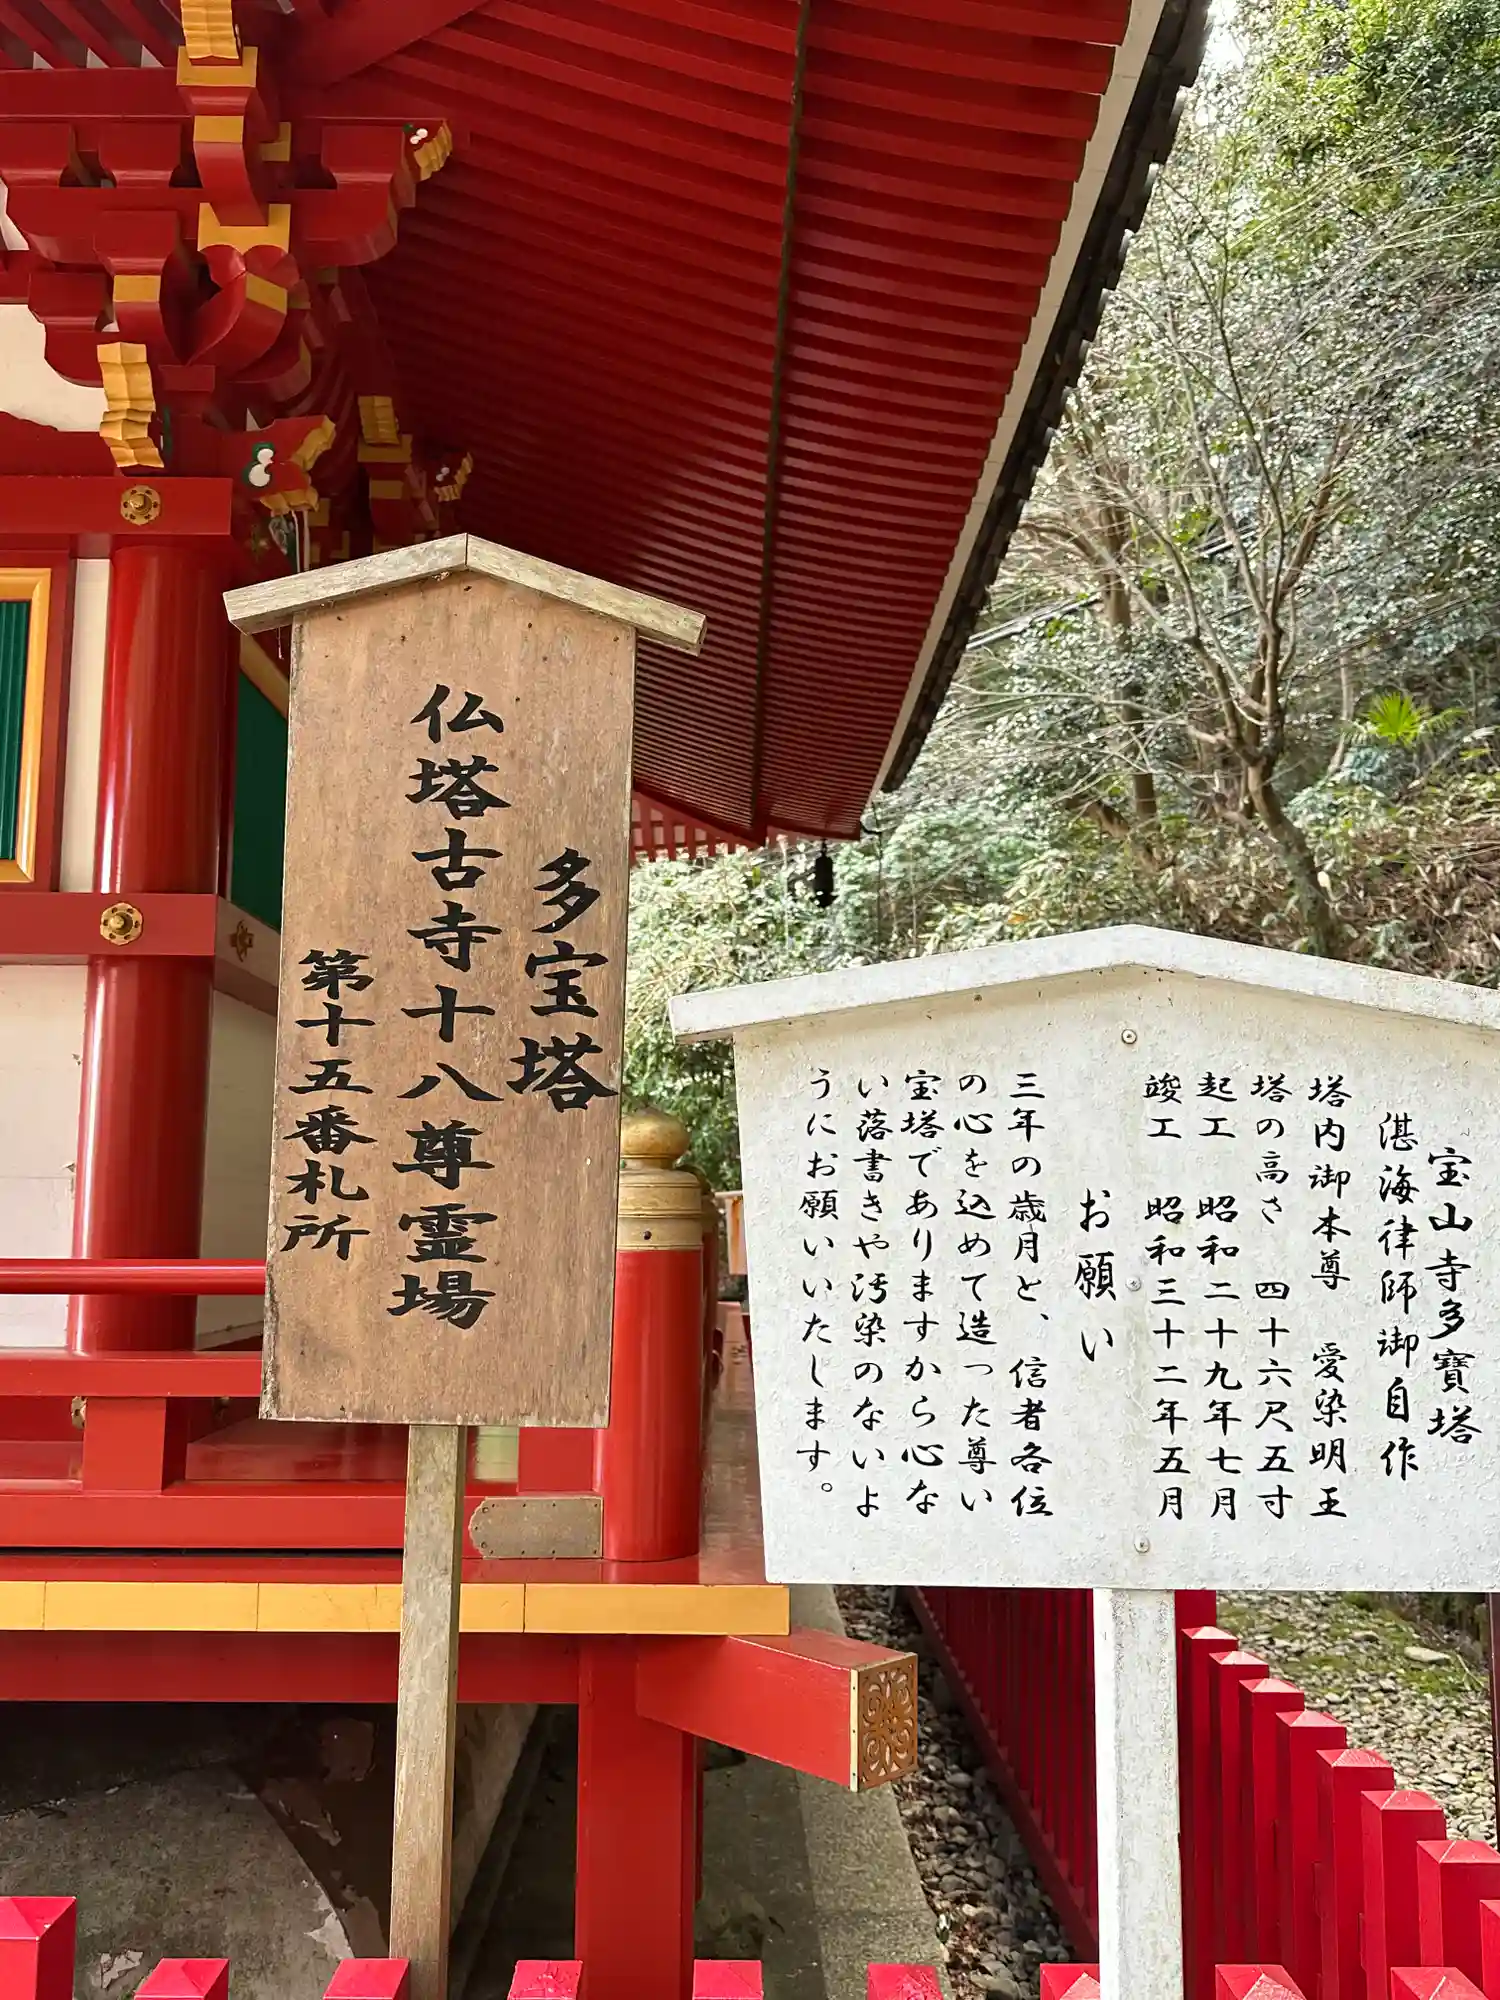 多宝塔
仏塔古寺十八尊霊場
第十五番札所
宝山寺多寶塔
湛海律師御自作
塔内御本尊　愛染明王
塔の高さ　四十六尺五寸
起工　昭和二十九年七月
竣工　昭和三十二年五月
お願い
三年の歳月と、信者各位
の心を込めて造った尊い
宝塔でありますから心な
い落書きや汚染のないよ
うにお願いいたします。